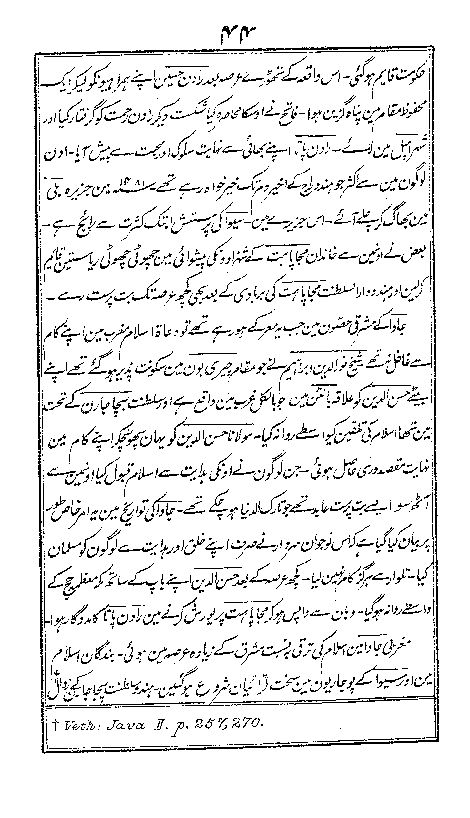 ۴۴
حکومت قایم ہوگئی۔ اس واقعہ کے تھوڑے عرصہ بعد رادن حسین اپنے ہمراہیونکو لیکر ایک
محفوظ مقام مین پناہ گزین ہوا۔ فاتح نے اوسکا محاصرہ کیا شکست دیکر رادن حسین کو گرفتار کیا اور
شہر امپل مین لے آئے۔ رادن پاتا اپنے بھائی سے نہایت سلوک اور محبت سے پیش آیا۔ اون
لوگون مین سے اکثر جو ہندو راج کے اخیر دم تک خیرخواہ رہے تھے ۱۴۸۱ء مین جزیرہ بلی
مین بھاگ کر چلے آئے۔ اس جزیرے مین۔ سیوا کی پرستش ابتک کثرت سے رائج ہے۔
بعض نے اونمین سے خاندان مجاپاہت کے شہزادونکی پیشوائی مین چھوٹی چھوٹی ریاستین قایم
کرلین اور ہندو دارالسلطنت مجاپاہت کی بربادی کے بعد بھی کچھ عرصہ تک بت پرست رہے۔
جاوا کے مشرقی حصون مین جب یہ معرکے ہو رہے تھے تو دعاۃ اسلام مغرب مین اپنے کام
سے غافل نہ تھے شیخ نورالدین ابراہیم نے جو مقام چیری بون مین سکونت پذیر ہوگئے تھے اپنے
بیٹے حسن الدین کو علاقہ بانتن مین جو بالکل غرب مین واقع ہے اور سلطنت پجاجارن کے تحت
مین تھا اسلام کی تلقین کیواسطے روانہ کیا۔ مولانا حسن الدین کو یہان پہونچکر اپنے کام مین
نہایت مقصدوری حاصل ہوئی۔ جن لوگون نے اونکی ہدایت سے اسلام قبول کیا اونمین سے
آٹھ سو ایسے بت پرست عابد تھے جو تارک الدنیا ہوچکے تھے۔ جاوا کی تواریخ مین یہ امر خاص طور
پر بیان کیا گیا ہے کہ اس نوجوان سردار نے صرف اپنے خلق اور ہدایت سے لوگون کو مسلمان
کیا۔ تلوار سے ہرگز کام نہین لیا۔ کچھ عرصہ کے بعد حسن الدین اپنے باپ کے ساتھ مکہ معظمہ حج کے
واسطے روانہ ہوگیا۔ وہان سے واپس ہوکر مجاپاہت پر یورش کرنے مین رادن پاتا کا مددگار ہوا۔
مغربی جاوا مین اسلام کی ترقی بہ نسبت مشرق کے زیادہ عرصہ مین ہوئی۔ بندگان اسلام
مین اور سیوا کے پوجاریون مین سخت لڑائیان شروع ہوگئین۔ ہندو سلطنت پجاجارن کے زوال
† Veth: Java II. p. 257, 270.